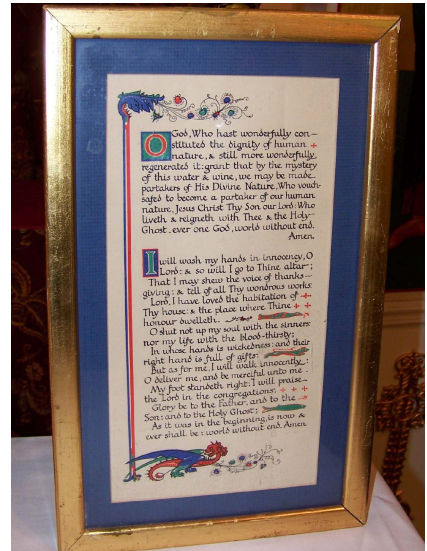 O God, Who hast wonderfully con-
stituted the dignity of human
nature, & still more wonderfully
regenerated it: grant that by the mystery
of this water & wine, we may be made
partakers of His Divine Nature, Who vouch-
safed to become a partaker of our human
nature, Jesus Christ Thy Son our Lord: Who
liveth & reigneth with Thee & the Holy-
Ghost, ever one God, world without end.
Amen.
I will wash my hands in innocency, O
Lord: & so will I go to Thine altar;
That I may shew the voice of thanks-
giving: & tell of all Thy wondrous works.
Lord, I have loved the habitation of
Thy house: & the place where Thine
honour dwelleth.
O shut not up my soul with the sinners:
nor my life with the blood-thirsty;
In whose hands is wickedness: and their
right hand is full of gifts.
But as for me, I will walk innocently:
O deliver me, and be merciful unto me.
My foot standeth right: I will praise
the Lord in the congregations.
Glory be to the Father, and to the
Son: and to the Holy Ghost;
As it was in the beginning, is now &
ever shall be: world without end. Amen